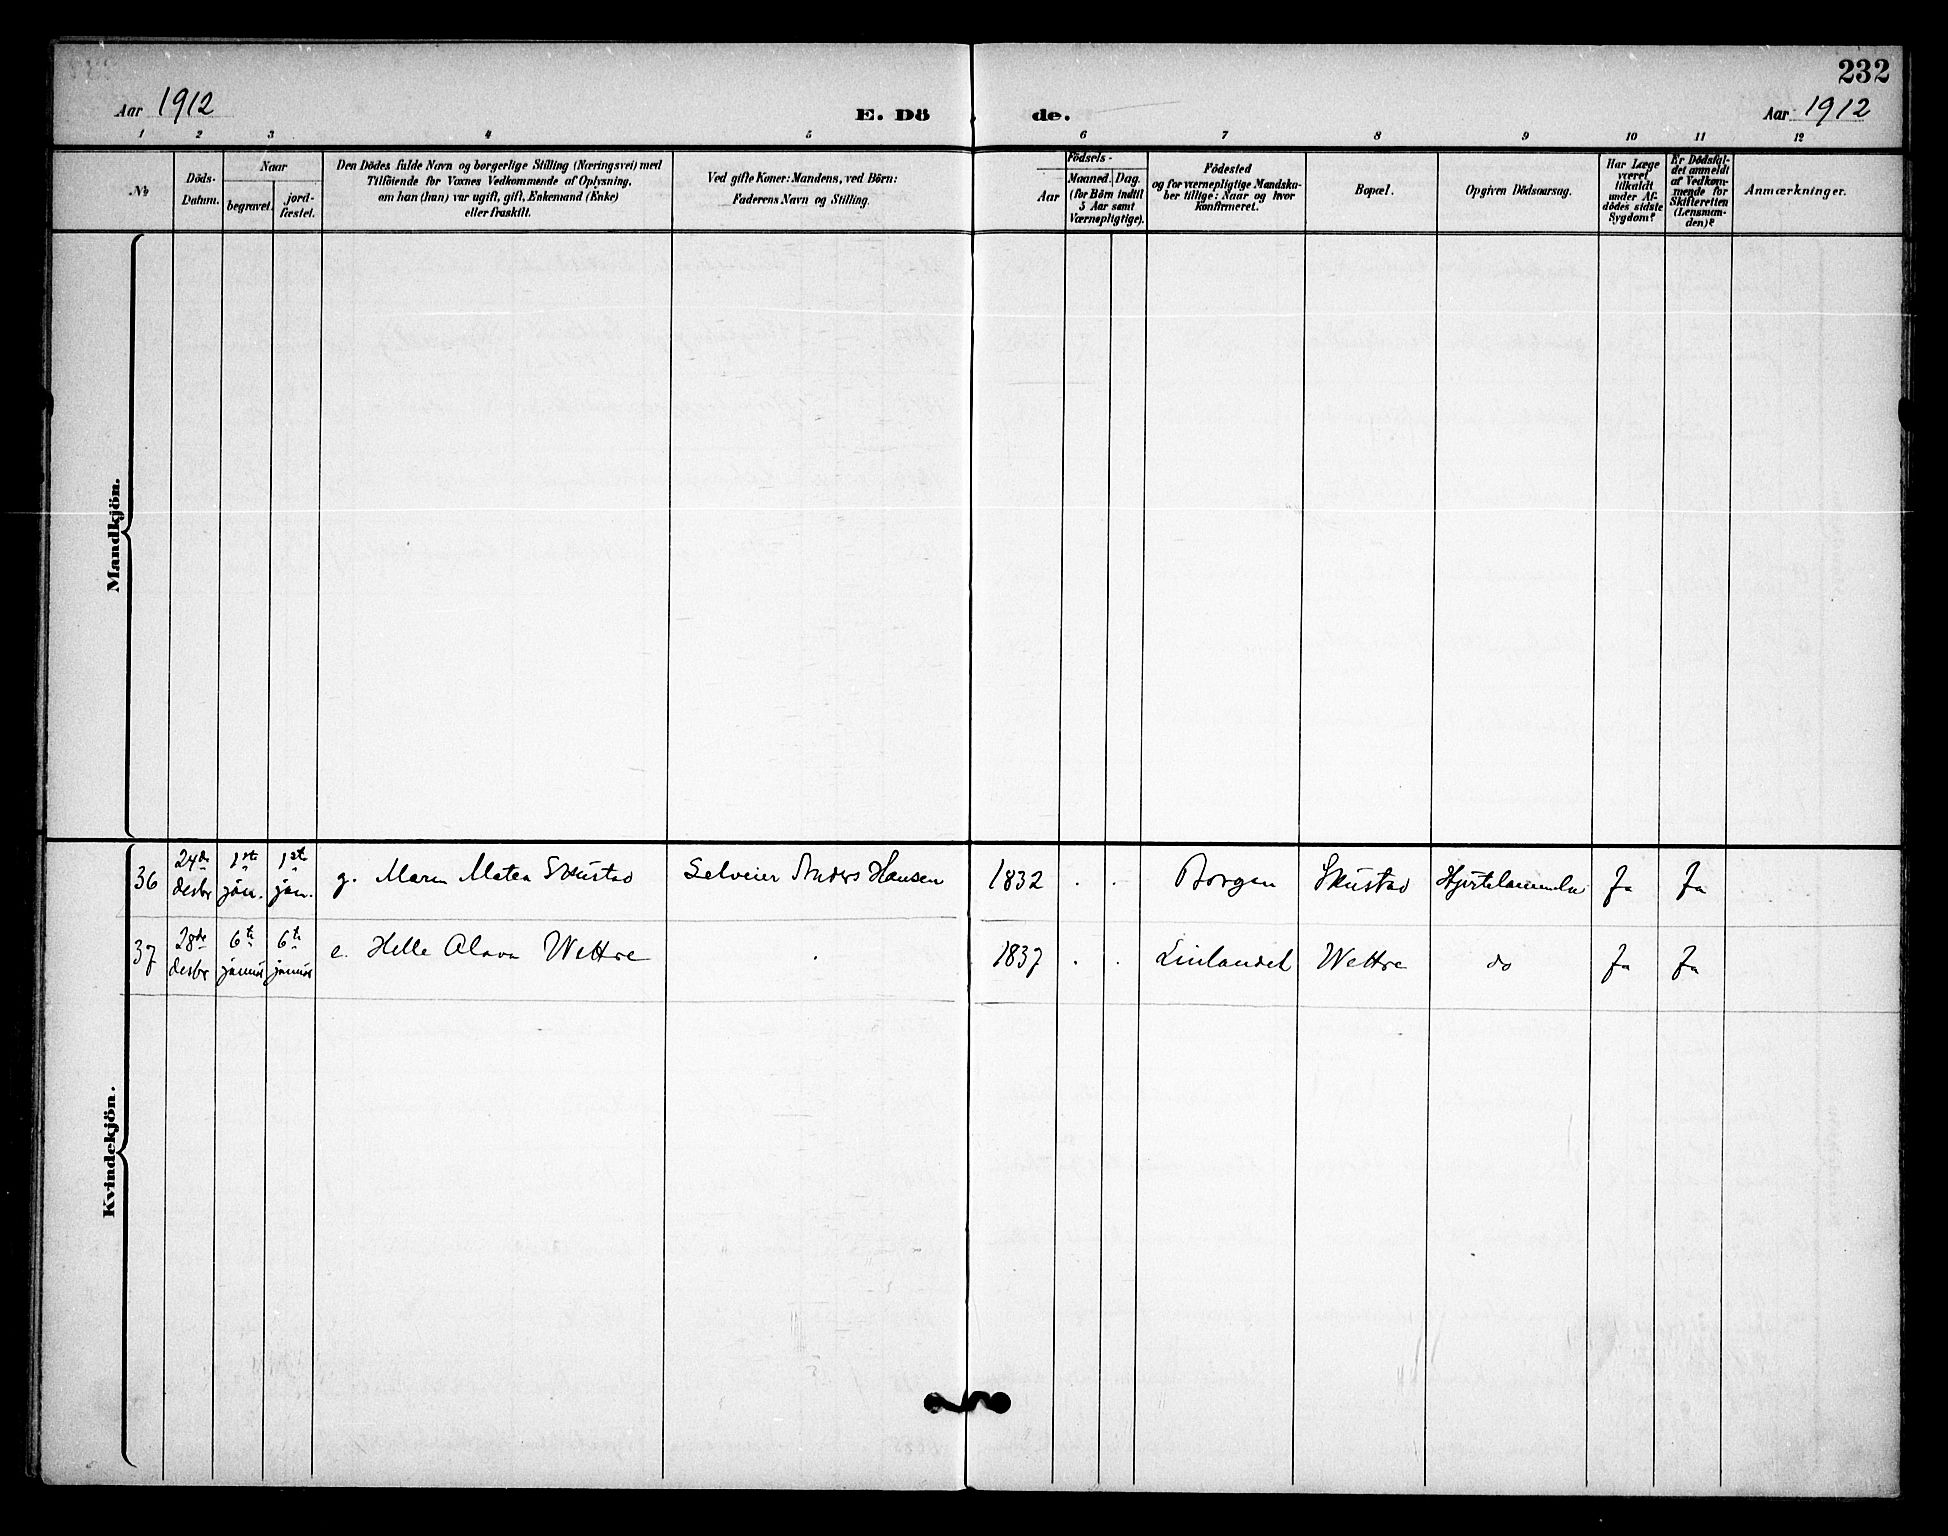 232
Aar 1912 E. Dö de. Aar 1912
1 2 3 4 5 6 7 8 9 10 11 12
№
Döds-
Datum.
Naar
begravet.
jord-
fæstet.
Den Dödes fulde Navn og borgerlige Stilling (Næringsvei) med
Tilföiende for Voxnes Vedkommende af Oplysning,
om han (hun) var ugift, gift, Enkemand (Enke)
eller fraskilt.
Ved gifte Koner: Mandens, ved Börn:
Faderens Navn og Stilling.
Födsels-
Aar
Maaned. Dag.
(for Börn indtil
5 Aar samt
Værnepligtige).
Födested
og for værnepligtige Mandska-
ber tillige: Naar og hvor
konfirmeret.
Bopæl.
Opgiven Dödsaarsag.
Har Læge
været
tilkaldt
under Af-
dödes sidste
Sygdom?
Er Dödsfal-
det anmeldt
af Vedkom-
mende for
Skifteretten
(Lensman-
den)?
Anmærkninger.
Mandkjön.
Kvindekjön.
36 24de desbr 1ste jan. 1ste jan. g. Maren Matea Skustad Selveier Anders Hansen 1832 . . Borgen Skustad Hjertelammelse Ja Ja
37 28de desbr 6te januar 6te januar e. Helle Olava Wettre . 1837 . . Linlandet Wettre do Ja Ja